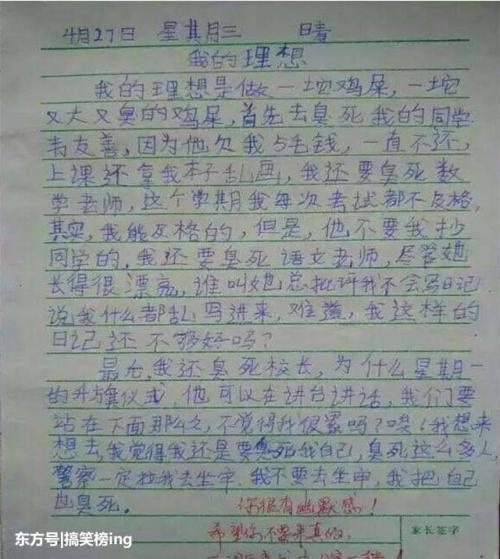 4月27日 星其月三 晴
我的理想
我的理想是做一坨鸡屎，一坨
又大又臭的鸡屎，首先去臭死我的同学
韦友善，因为他欠我5毛钱，一直不还，
上课还拿我本子乱画，我还要臭死数
学老师，这个学期我每次考试都不及格，
其实，我能及格的，但是，他不要我抄
同学的，我还要臭死语文老师，尽管她
长得很漂亮，谁叫她总批评我不会写日记
说我什么都乱写进来，难道，我这样的
日记还不够好吗？
最后，我还臭死校长，为什么星期一
的升旗仪式，他可以在讲台讲话，我们要
站在下面那么久，不觉得我很累吗？唉！我想来
想去，我觉得我还是要臭死我自己，臭死这么多人，
警察一定拉我去坐牢，我不要去坐牢，我把自己
也臭死。
你很有幽默感！
希望你不要来真的，
家长签字
东方号|搞笑榜ing